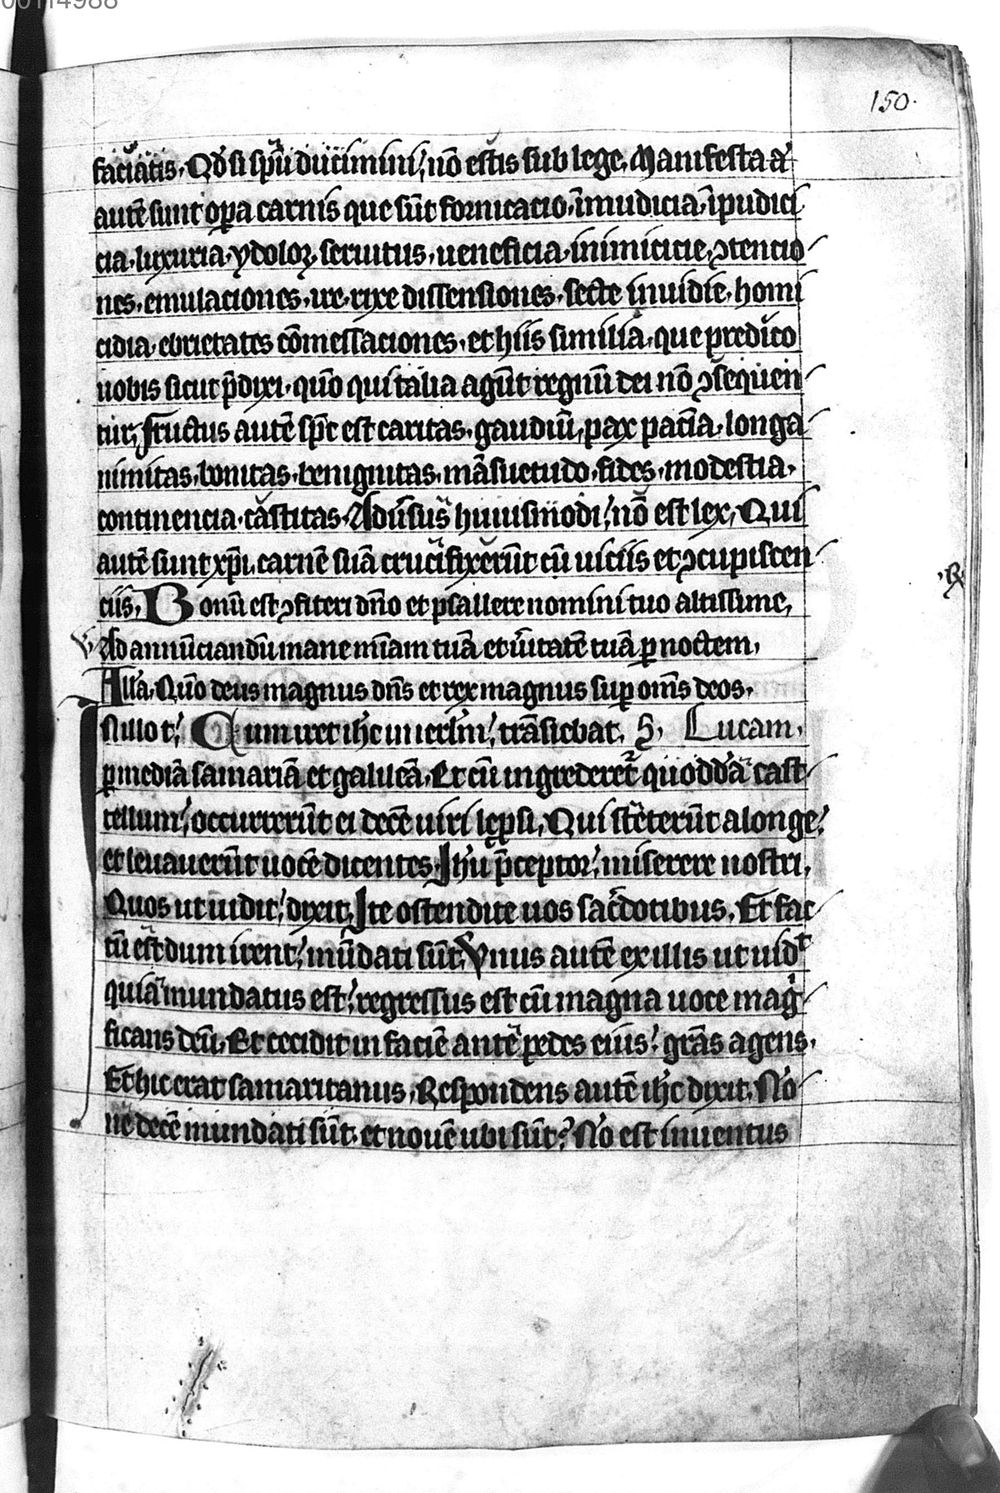 00114988
150.
faciatis. Qd̕ si sp̄u ducimini, nō estis sub lege. Manifesta a͛
autē sunt oꝑa carnis que sūt fornicacio, īmudicia, īpudici
cia, luxuria, ydoloꝝ seruitus, ueneficia, inimicicie, ꝯtencio
nes, emulaciones, ire, rixe dissensiones, secte inuidie, homi
cidia, ebrietates cōmessaciones, et hiis similia, que predico
uobis sicut p̄dixi, quō qui talia agūt regnū dei nō ꝯsequen
tur, Fructus autē sp̄c est caritas, gaudiū, pax pacīa, longa
nimitas, bonitas, benignitas, māsuetudo, fides, modestia,
continencia, castitas, Adūsus huiusmodi, nō est lex, Qui
autē sunt xp̄i, carnē suā crucifixerūt cū uiciis et ꝯcupiscen
ciis, Bonū est ꝯfiteri dn̄o et psallere nomini tuo altissime,
V Ad annūciandū mane mīam tuā et ūitatē tuā ꝑ noctem,
Alla, Quō deus magnus dn̄s et rex magnus suꝑ om̄s deos,
In illo t̕, Cum iret ih̄c in ierlm̄, trāsiebat, S, Lucam,
ꝑ mediā samariā et galileā, Et cū ingrederet̕ quoddā cast
tellum, occurrerūt ei decē uiri leprosi, Qui steterūt a longe,
et leuauerūt uocē dicentes, Ih̄u p̄ceptor, miserere nostri,
Quos ut uidit, dixit, Ite ostendite uos sacdotibus, Et fac
tū est dum irent, mūdati sūt, Vnus autē ex illis ut uidt
quia mundatus est, regressus est cū magna uoce magi
ficans deū, Et cecidit in faciē ante pedes eius, grās agens,
Et hic erat samaritanus, Respondens autē ih̄c dixit, Nō
ne decē mundati sūt, et nouē ubi sūt? Nō est inuentus